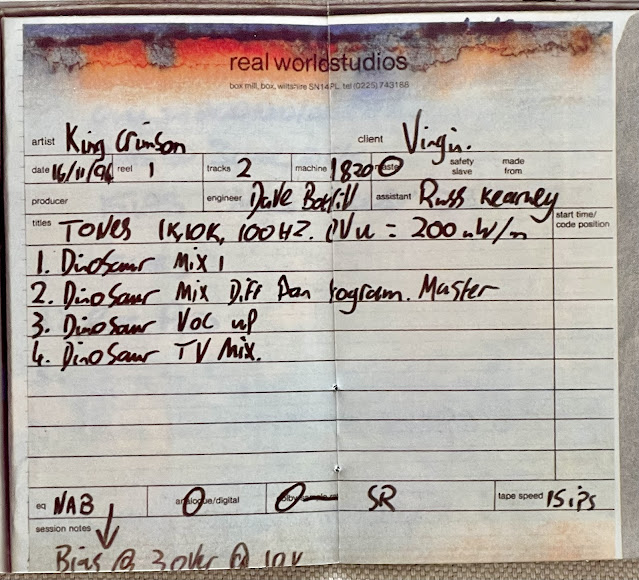 real worldstudios
box mill, box, wiltshire SN14PL. tel (0225) 743188
artist King Crimson client Virgin.
date 16/11/94 reel 1 tracks 2 machine 1820 master safety slave made from
producer engineer Dave Bottrill assistant Russ Kearney
titles TONES 1K, 10K, 100HZ. 0Vu = 200 nW/m start time/ code position
1. Dinosaur Mix 1
2. Dinosaur Mix Diff Pan Program. Master
3. Dinosaur Voc up
4. Dinosaur TV Mix.
eq NAB analogue/digital SR tape speed 15ips
session notes
Bias @ 3 over @ 10K